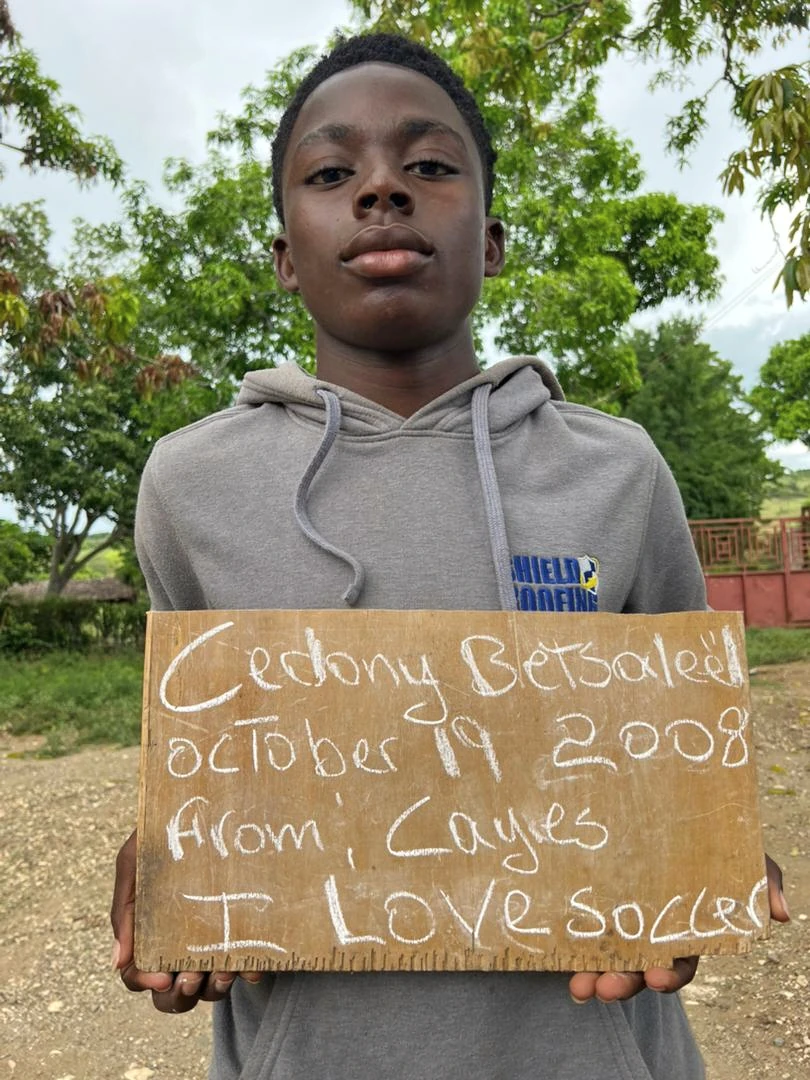 SHIELD
ROOFING
Cedony Betsaleël
October 19 2008
From; Cayes
I Love soccer